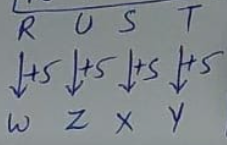 R U S T
↓+5 ↓+5 ↓+5 ↓+5
W Z X Y